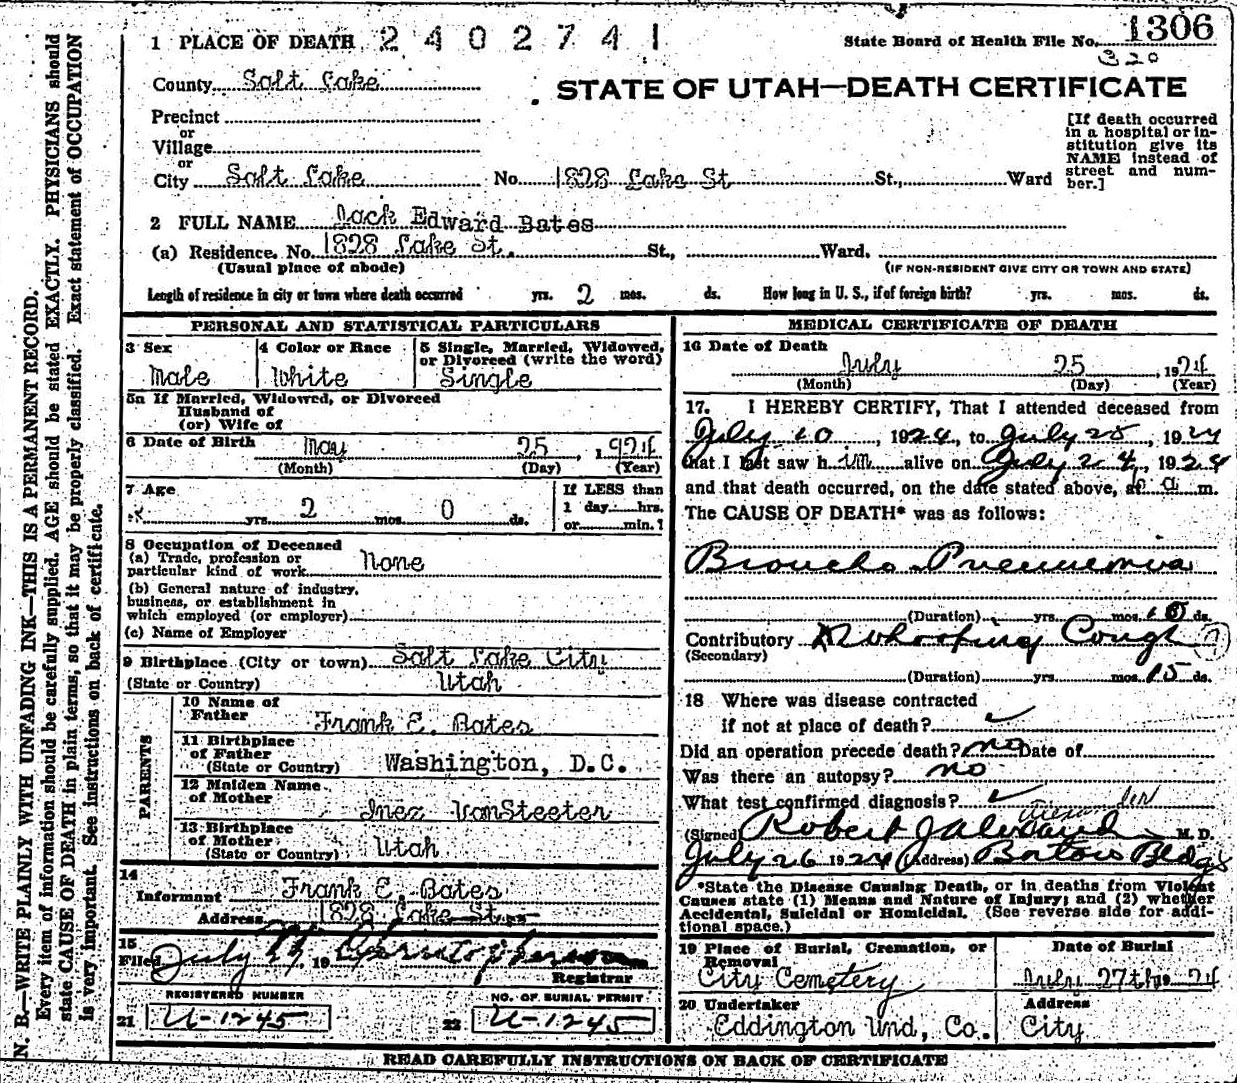 1 PLACE OF DEATH 2402741
State Board of Health File No. 1306
320
County Salt Lake
STATE OF UTAH—DEATH CERTIFICATE
Precinct
or
Village
or
City Salt Lake No. 1828 Lake St St., Ward
[If death occurred in a hospital or institution give its NAME instead of street and number.]
2 FULL NAME Jack Edward Bates
(a) Residence. No. 1828 Lake St. St., Ward.
(Usual place of abode) (IF NON-RESIDENT GIVE CITY OR TOWN AND STATE)
Length of residence in city or town where death occurred yrs. 2 mos. ds. How long in U. S., if of foreign birth? yrs. mos. ds.
PERSONAL AND STATISTICAL PARTICULARS
3 Sex 4 Color or Race 5 Single, Married, Widowed,
or Divorced (write the word)
Male White Single
5a If Married, Widowed, or Divorced
Husband of
(or) Wife of
6 Date of Birth May 25, 1924
(Month) (Day) (Year)
7 Age If LESS than
1 day hrs.
yrs. 2 mos. 0 ds. or min.?
8 Occupation of Deceased
(a) Trade, profession or
particular kind of work None
(b) General nature of industry,
business, or establishment in
which employed (or employer)
(c) Name of Employer
9 Birthplace (City or town) Salt Lake City
(State or Country) Utah
PARENTS
10 Name of
Father Frank E. Bates
11 Birthplace
of Father
(State or Country) Washington, D.C.
12 Maiden Name
of Mother Inez VanSteeter
13 Birthplace
of Mother
(State or Country) Utah
14
Informant Frank E. Bates
Address 1828 Lake St.
15
Filed July 19
Registrar
REGISTERED NUMBER NO. OF BURIAL PERMIT
21 U-1245 22 U-1245
MEDICAL CERTIFICATE OF DEATH
16 Date of Death
July 25, 1924
(Month) (Day) (Year)
17. I HEREBY CERTIFY, That I attended deceased from
July 10, 1924, to July 25, 1924
that I last saw him alive on July 24, 1924
and that death occurred, on the date stated above, at a m.
The CAUSE OF DEATH* was as follows:
Broncho-Pneumonia
(Duration) yrs. mos. ds.
Contributory Whooping Cough
(Secondary)
(Duration) yrs. mos. 15 ds.
18 Where was disease contracted
if not at place of death? ✓
Did an operation precede death? no Date of
Was there an autopsy? no
What test confirmed diagnosis? ✓
(Signed) Robert J Alexander M. D.
July 26 1924 (Address) Boston Bldg
*State the Disease Causing Death, or in deaths from Violent
Causes state (1) Means and Nature of Injury; and (2) whether
Accidental, Suicidal or Homicidal. (See reverse side for addi-
tional space.)
19 Place of Burial, Cremation, or Date of Burial
Removal
City Cemetery July 27th 24
20 Undertaker Address
Eddington Und, Co. City
READ CAREFULLY INSTRUCTIONS ON BACK OF CERTIFICATE
N. B.—WRITE PLAINLY WITH UNFADING INK—THIS IS A PERMANENT RECORD.
Every item of information should be carefully supplied. AGE should be stated EXACTLY. PHYSICIANS should
state CAUSE OF DEATH in plain terms, so that it may be properly classified. Exact statement of OCCUPATION
is very important. See instructions on back of certificate.